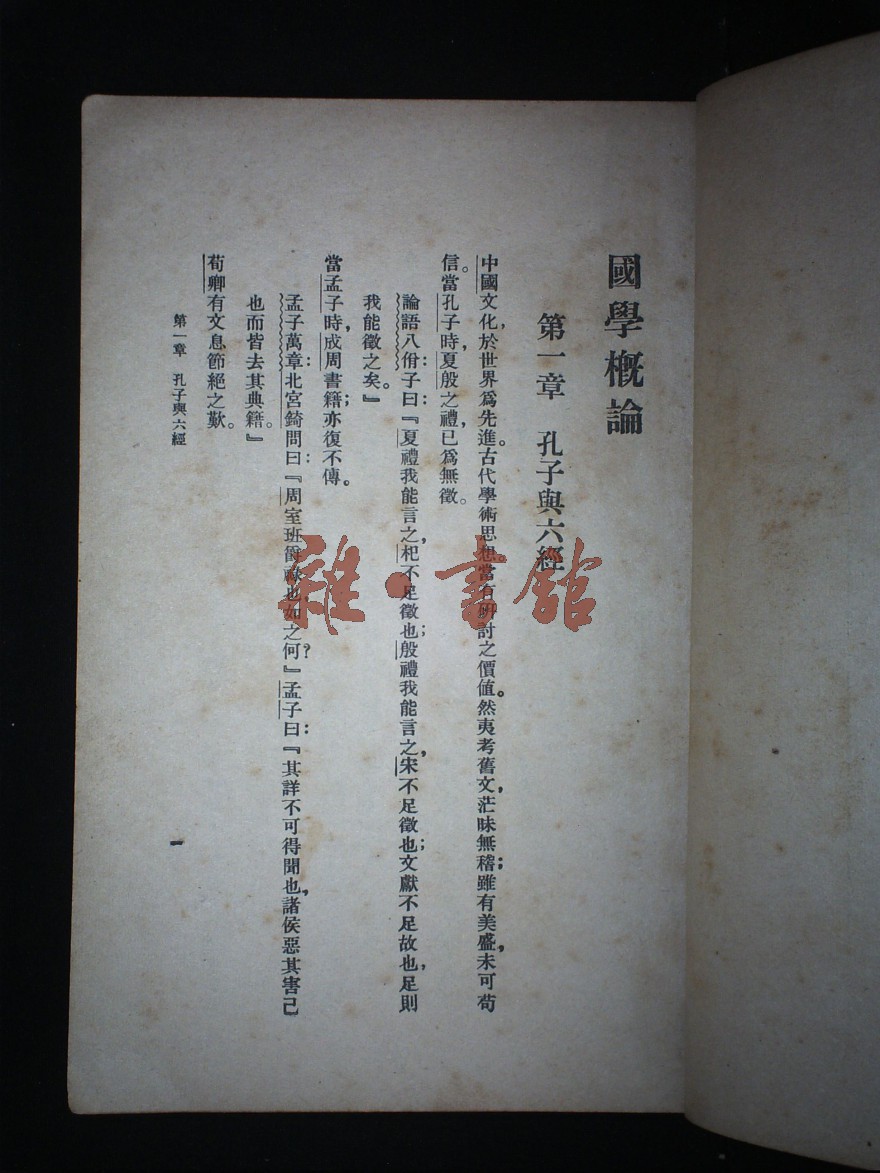 國學概論
第一章 孔子與六經
中國文化，於世界爲先進。古代學術思想，當有研討之價值。然夷考舊文，茫昧無稽；雖有美盛，未可苟
信。當孔子時，夏殷之禮，已爲無徵。
論語八佾：子曰：『夏禮我能言之，杞不足徵也；殷禮我能言之，宋不足徵也；文獻不足故也，足則
我能徵之矣。』
當孟子時，成周書籍；亦復不傳。
孟子萬章：北宮錡問曰：『周室班爵祿也，如之何？』孟子曰：『其詳不可得聞也，諸侯惡其害己
也而皆去其典籍。』
荀卿有文息節絕之歎。
第一章 孔子與六經
一
雜·書館